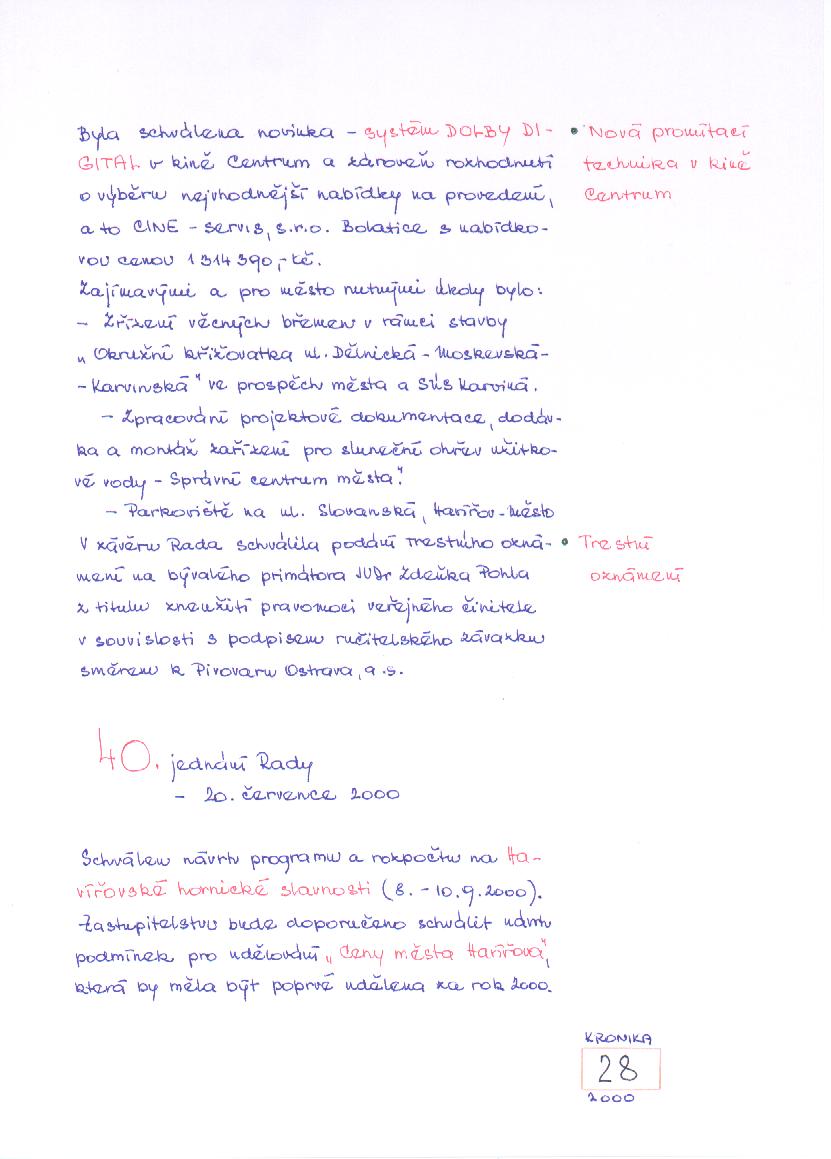 Byla schválena novinka – systém DOLBY DI-
GITAL v kině Centrum a zároveň rozhodnutí
o výběru nejvhodnější nabídky na provedení,
a to CINE – servis, s.r.o. Bolatice s nabídko-
vou cenou 1 314 390,- Kč.
• Nová promítací
technika v kině
Centrum
Zajímavými a pro město nutnými úkoly bylo:
– Zřízení věcných břemen v rámci stavby
„Okružní křižovatka ul. Dělnická – Moskevská –
– Karvinská" ve prospěch města a SÚS Karviná.
– Zpracování projektové dokumentace, dodáv-
ka a montáž zařízení pro sluneční ohřev užitko-
vé vody – Správní centrum města".
– Parkoviště na ul. Slovanská, Havířov-Město
V závěru Rada schválila podání trestního ozná-
mení na bývalého primátora JUDr Zdeňka Pohla
z titulu zneužití pravomoci veřejného činitele
v souvislosti s podpisem ručitelského závazku
směrem k Pivovaru Ostrava, a.s.
• Trestní
oznámení
40. jednání Rady
– 20. července 2000
Schválen návrh programu a rozpočtu na Ha-
vířovské hornické slavnosti (8. – 10.9.2000).
Zastupitelstvu bude doporučeno schválit návrh
podmínek pro udělování „Ceny města Havířova",
která by měla být poprvé udělena za rok 2000.
KRONIKA
28
2000